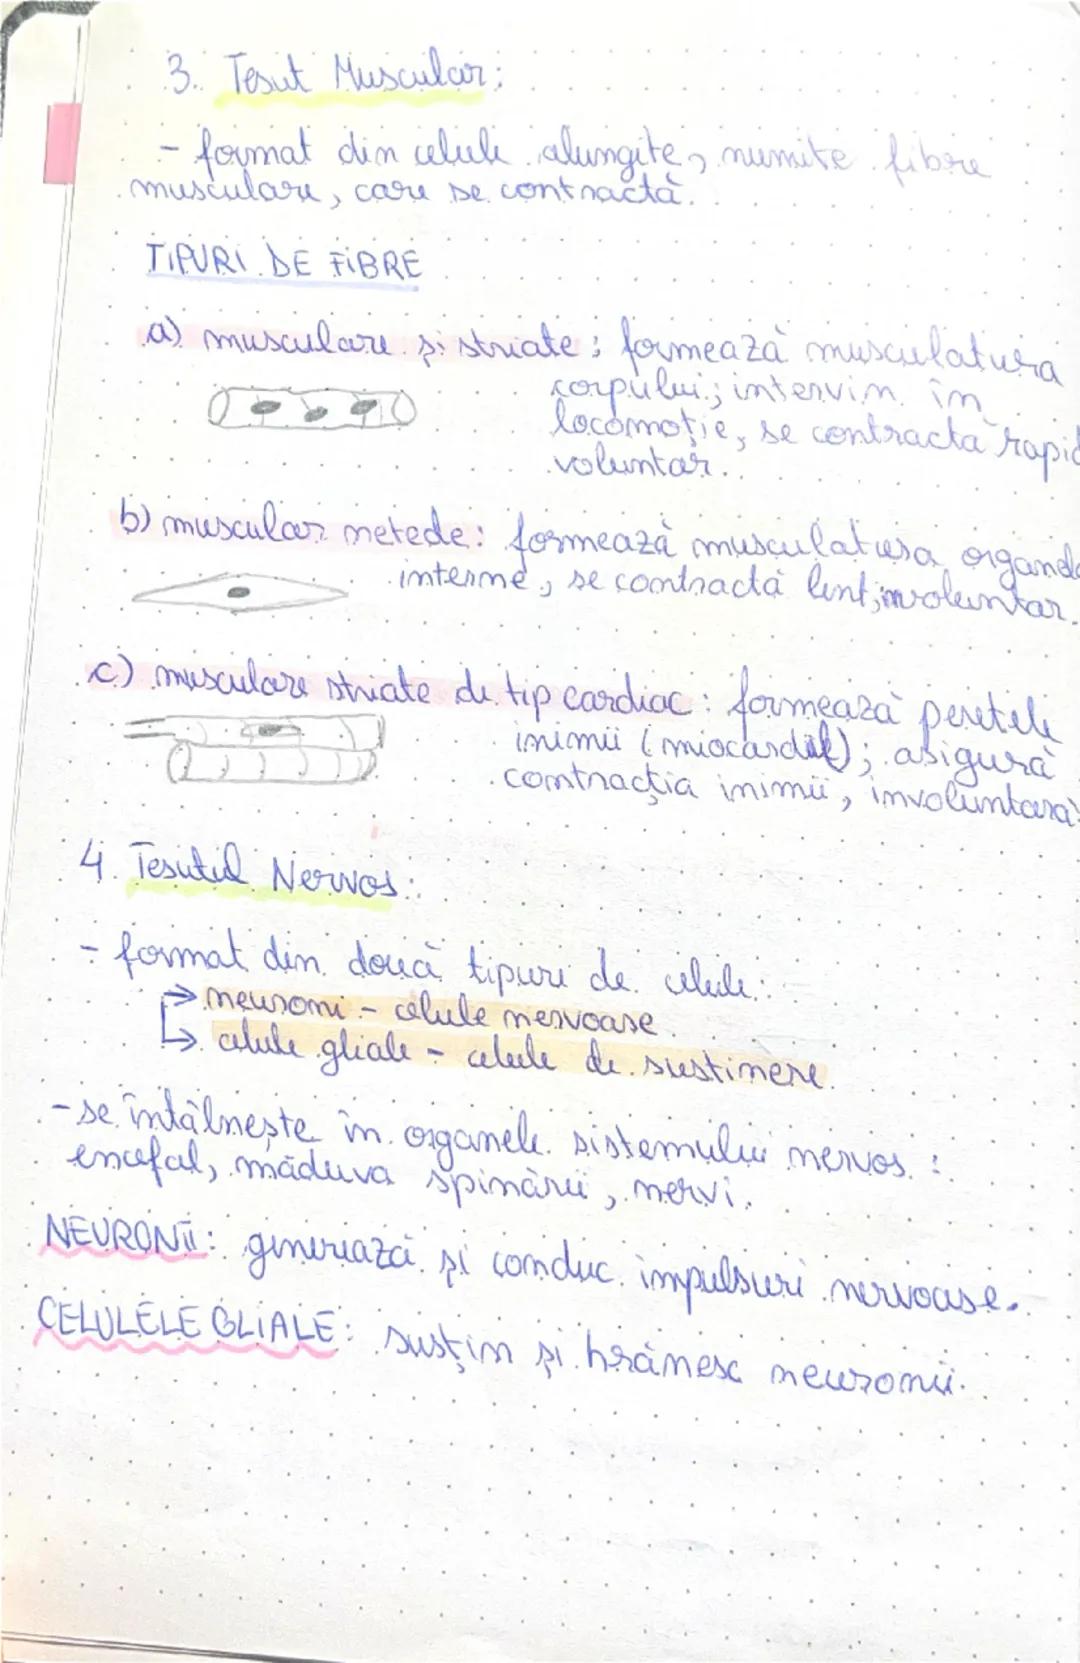 3. Tesut Muscular:
- format din celule alungite, numite fibre
musculare, care se contractă.
TIPURI DE FIBRE
a) musculare și striate; formează musculatura
corpului; intervin în
locomoție, se contractă rapid
voluntar.
b) muscular netede: formează musculatura organelo
interne, se contractă lent, involuntar.
c) musculare striate de tip cardiac: formează peretele
inimii (miocardul); asigură
contracția inimii, involuntară
4. Tesutul Nervos:
- format din două tipuri de celule:
→ neuroni - celule nervoase
↳ celule gliale - celule de sustinere.
- se întâlnește în organele sistemului nervos:
encefal, măduva spinării, nervi.
NEURONII: generează și conduc impulsuri nervoase.
CELULELE GLIALE: susțin și hrănesc neuronii.